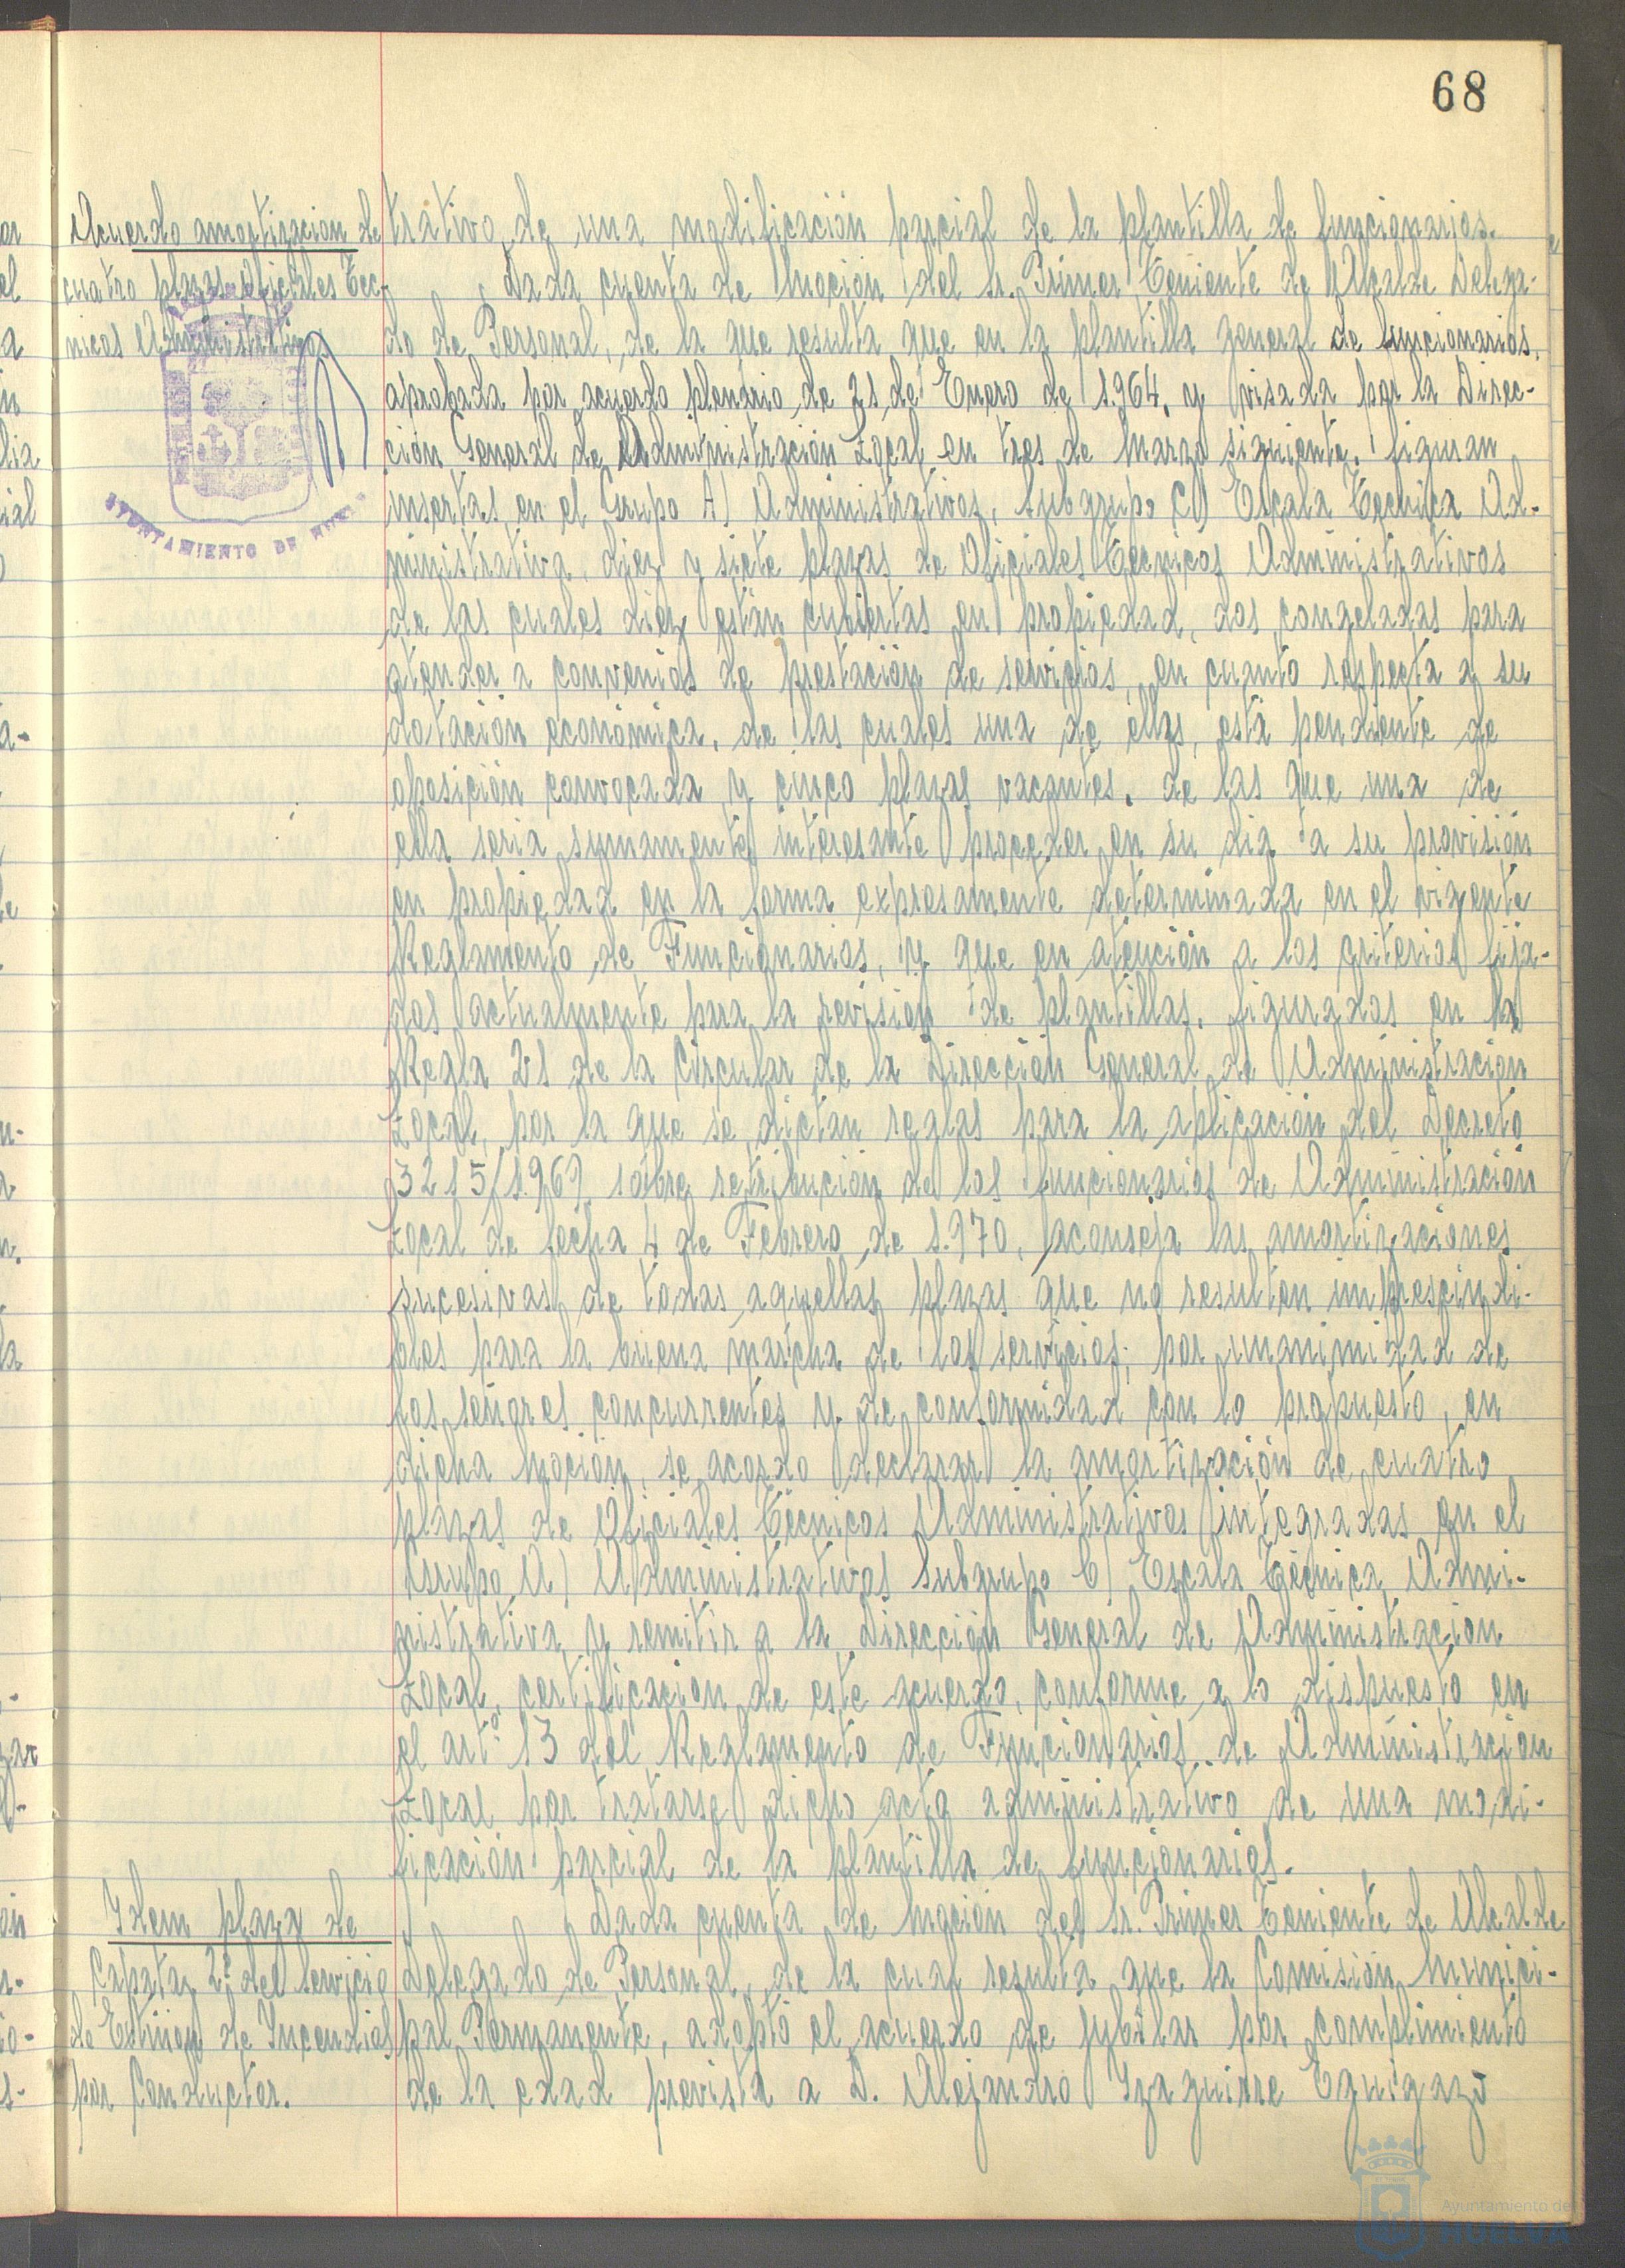 68
Acuerdo amortizacion de
cuatro plazas oficiales Tec-
nicos Administrativos
AYUNTAMIENTO DE HUELVA
trativo, de una modificación parcial de la plantilla de funcionarios.
Dada cuenta de Moción del Sr. Primer Teniente de Alcalde Delega-
do de Personal, de la que resulta que en la plantilla general de funcionarios,
aprobada por acuerdo plenario de 21 de Enero de 1.964, y visada por la Direc-
ción General de Administración Local en tres de Marzo siguiente, figuran
insertas en el Grupo A) Administrativos, Subgrupo C) Escala Tecnica Ad-
ministrativa, diez y siete plazas de Oficiales Tecnicos Administrativos
de las cuales diez están cubiertas en propiedad, dos congeladas para
atender a convenios de prestación de servicios, en cuanto respecta a su
dotación económica, de las cuales una de ellas, está pendiente de
oposición convocada y cinco plazas vacantes, de las que una de
ella seria sumamente interesante proceder en su dia a su provisión
en propiedad en la forma expresamente determinada en el vigente
Reglamento de Funcionarios, y que en atención a los criterios fija-
dos actualmente para la revisión de plantillas, figurados en la
Regla 2ª1 de la Circular de la Dirección General de Administración
Local, por la que se dictan reglas para la aplicación del Decreto
3215/1.969 sobre retribución de los funcionarios de Administración
Local de fecha 4 de Febrero de 1.970, aconseja las amortizaciones
sucesivas de todas aquellas plazas que no resulten imprescindi-
bles para la buena marcha de los servicios; por unanimidad de
los señores concurrentes y de conformidad con lo propuesto, en
dicha Moción, se acordo declarar la amortización de cuatro
plazas de Oficiales Técnicos Administrativos integradas en el
Grupo A) Administrativos Subgrupo C) Escala Técnica Admi-
nistrativa y remitir a la Dirección General de Administracion
Local, certificacion de este acuerdo, conforme a lo dispuesto en
el artº 13 del Reglamento de Funcionarios de Administracion
Local por tratarse dicho acto administrativo de una modi-
ficación parcial de la plantilla de funcionarios.
Idem plaza de
Capataz 2º del Servicio
de Extinon de Incendios
por Conductor.
Dada cuenta de Moción del Sr. Primer Teniente de Alcalde
Delegado de Personal, de la cual resulta que la Comisión Munici-
pal Permanente, adoptó el acuerdo de jubilar por cumplimiento
de la edad prevista a D. Alejandro Izaguirre Eguigazo
Ayuntamiento de
HUELVA